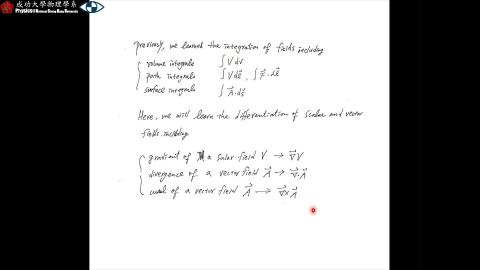 成功大學物理學系
Previously, we learned the integration of fields including
volume integrals ∫ V dv
path integrals ∫ V dl⃗ , ∫ F⃗ · dl⃗
surface integrals ∫ A⃗ · ds⃗
Here, we will learn the differentiation of scalar and vector
fields including
gradient of a scalar field V → ∇⃗V
divergence of a vector field A⃗ → ∇⃗·A⃗
curl of a vector field A⃗ → ∇⃗×A⃗